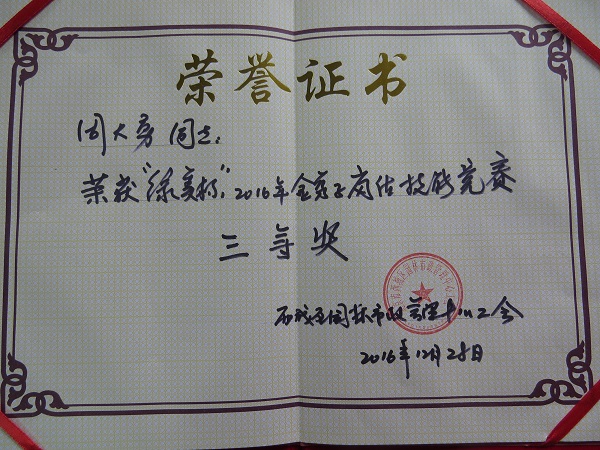 荣誉证书
周大勇同志:
荣获"绿美杯"2016年全员岗位技能竞赛
三等奖
西城区园林市政管理中心工会
2016年12月28日